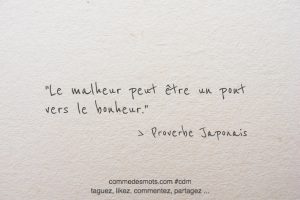 "Le malheur peut être un pont
vers le bonheur."
> Proverbe Japonais
commedesmots.com #cdm
taguez, likez, commentez, partagez ...